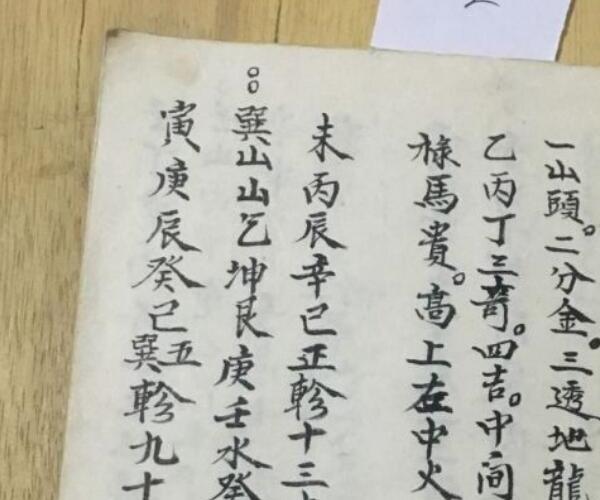 一山頭。二分金。三透地龍
乙丙丁三竒。四吉。中間
祿馬貴。高上在中火
未丙辰辛巳正軫十三
巽山山乞坤艮庚壬水癸
寅庚辰癸己五
巽軫九十